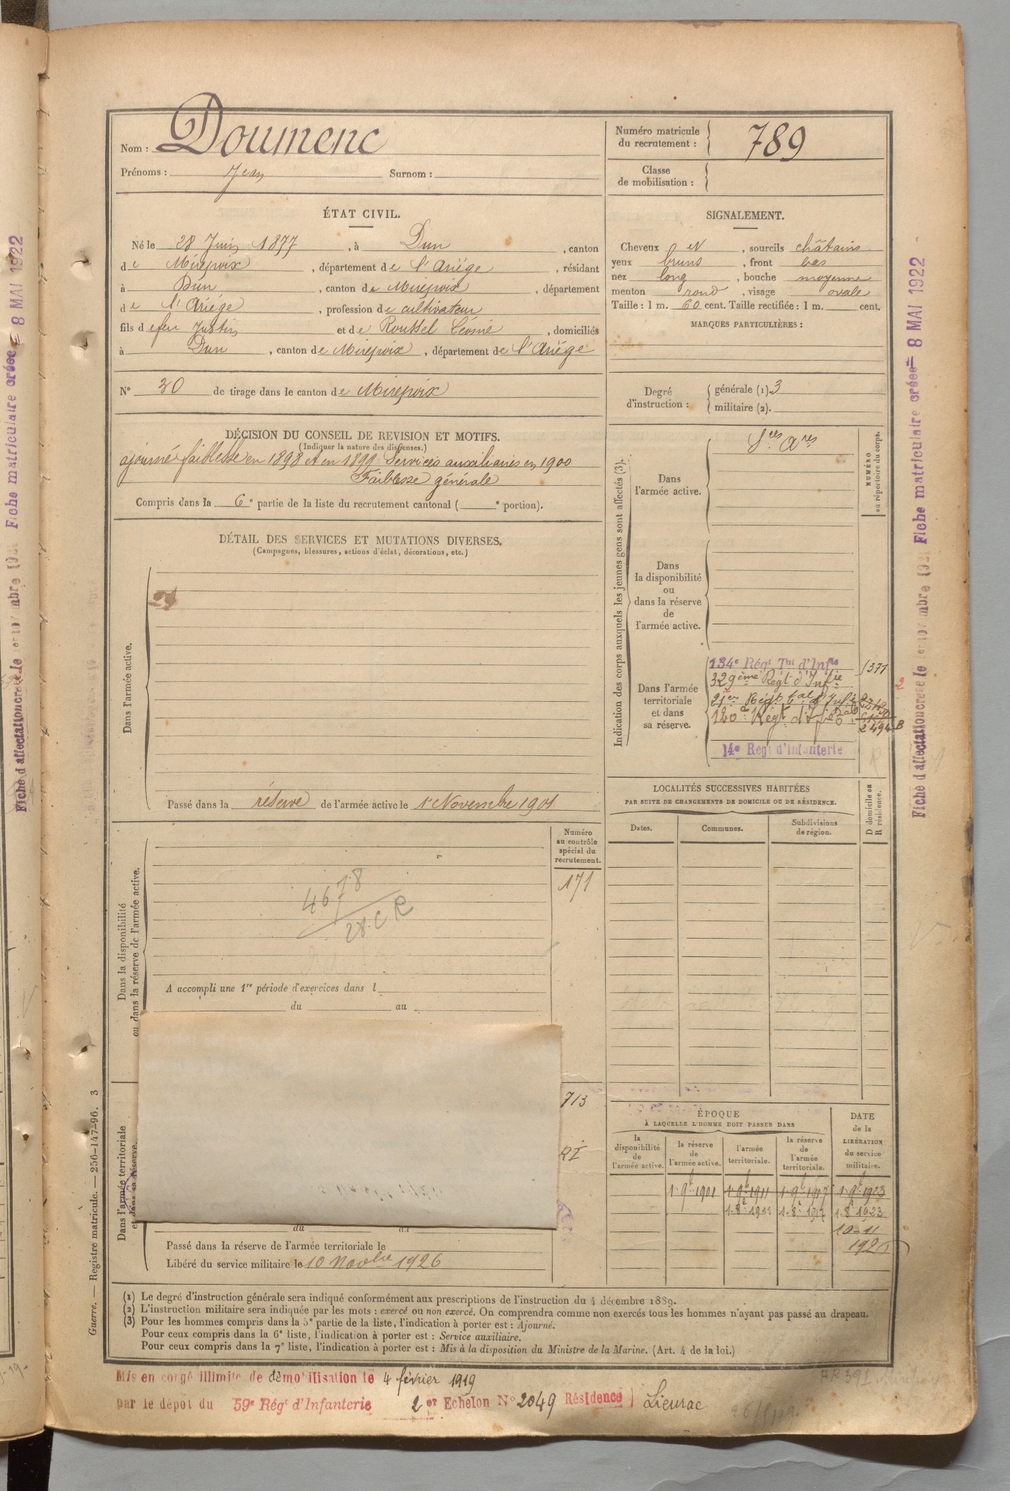 Nom : Doumenc
Prénoms : Jean Surnom :
Numéro matricule du recrutement : 789
Classe de mobilisation :
ÉTAT CIVIL.
Né le 28 Juin 1877, à Dun, canton
de Mirepoix, département de l'Ariége, résidant
à Dun, canton de Mirepoix, département
de l'Ariége, profession de cultivateur
fils de feu Justin et de Roussel Léonie, domiciliés
à Dun, canton de Mirepoix, département de l'Ariége
N° 30 de tirage dans le canton de Mirepoix
SIGNALEMENT.
Cheveux N, sourcils châtains
yeux bruns, front bas
nez long, bouche moyenne
menton rond, visage ovale
Taille : 1 m. 60 cent. Taille rectifiée : 1 m. cent.
MARQUES PARTICULIÈRES :
Degré d'instruction : générale (1) 3
militaire (2).
DÉCISION DU CONSEIL DE REVISION ET MOTIFS.
(Indiquer la nature des dispenses.)
ajourné faiblesse en 1898 et en 1899 Services auxiliaires en 1900
Faiblesse générale
Compris dans la 6e partie de la liste du recrutement cantonal ( e portion).
DÉTAIL DES SERVICES ET MUTATIONS DIVERSES.
(Campagnes, blessures, actions d'éclat, décorations, etc.)
Dans l'armée active.
Passé dans la réserve de l'armée active le 1er Novembre 1901
Indication des corps auxquels les jeunes gens sont affectés (3).
NUMÉRO au répertoire du corps.
Dans l'armée active.
Sces Ares
Dans la disponibilité ou dans la réserve de l'armée active.
Dans l'armée territoriale et dans sa réserve.
134e Régt Tal d'Infie
329ème Régt d'Infie
14e Régt d'Infanterie
LOCALITÉS SUCCESSIVES HABITÉES
PAR SUITE DE CHANGEMENTS DE DOMICILE OU DE RÉSIDENCE.
Dates. Communes. Subdivisions de région.
D domicile ou R résidence.
Dans la disponibilité ou dans la réserve de l'armée active.
Numéro au contrôle spécial du recrutement.
171
4678
28. C R
A accompli une 1re période d'exercices dans l
du au
713
RI
Dans l'armée territoriale
Passé dans la réserve de l'armée territoriale le
Libéré du service militaire le 10 Novbre 1926
ÉPOQUE
À LAQUELLE L'HOMME DOIT PASSER DANS
la disponibilité de l'armée active.
la réserve de l'armée active.
l'armée territoriale.
la réserve de l'armée territoriale.
DATE de la LIBÉRATION du service militaire.
1-9e 1901 1-9e 1911 1-9e 1917 1-9e 1923
1-8e 1923
10-11
1926
(1) Le degré d'instruction générale sera indiqué conformément aux prescriptions de l'instruction du 4 décembre 1889.
(2) L'instruction militaire sera indiquée par les mots : exercé ou non exercé. On comprendra comme non exercés tous les hommes n'ayant pas passé au drapeau.
(3) Pour les hommes compris dans la 5e partie de la liste, l'indication à porter est : Ajourné.
Pour ceux compris dans la 6e liste, l'indication à porter est : Service auxiliaire.
Pour ceux compris dans la 7e liste, l'indication à porter est : Mis à la disposition du Ministre de la Marine. (Art. 4 de la loi.)
Guerre. — Registre matricule. — 256-147-96. 3
Mis en congé illimité de démobilisation le 4 février 1919
par le dépôt du 59e Régt d'Infanterie 2er Echelon N° 2049 Résidence Lieurac
Fiche matriculaire créée 8 MAI 1922
Fiche d'affectation créée le
Fiche matriculaire créée 8 MAI 1922
Fiche d'affectation créée le